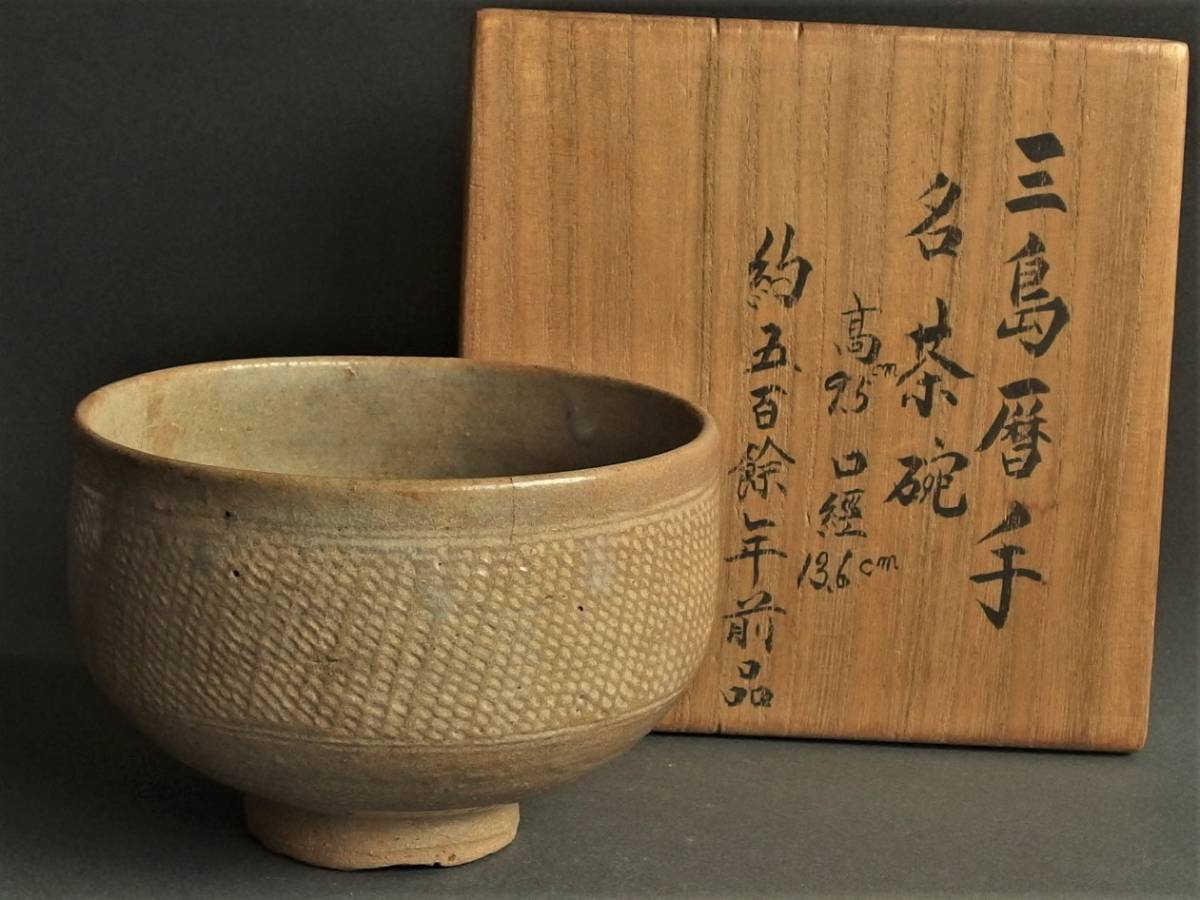 三島暦手
名茶碗
高9.5cm 口經13.6cm
約五百餘年前品